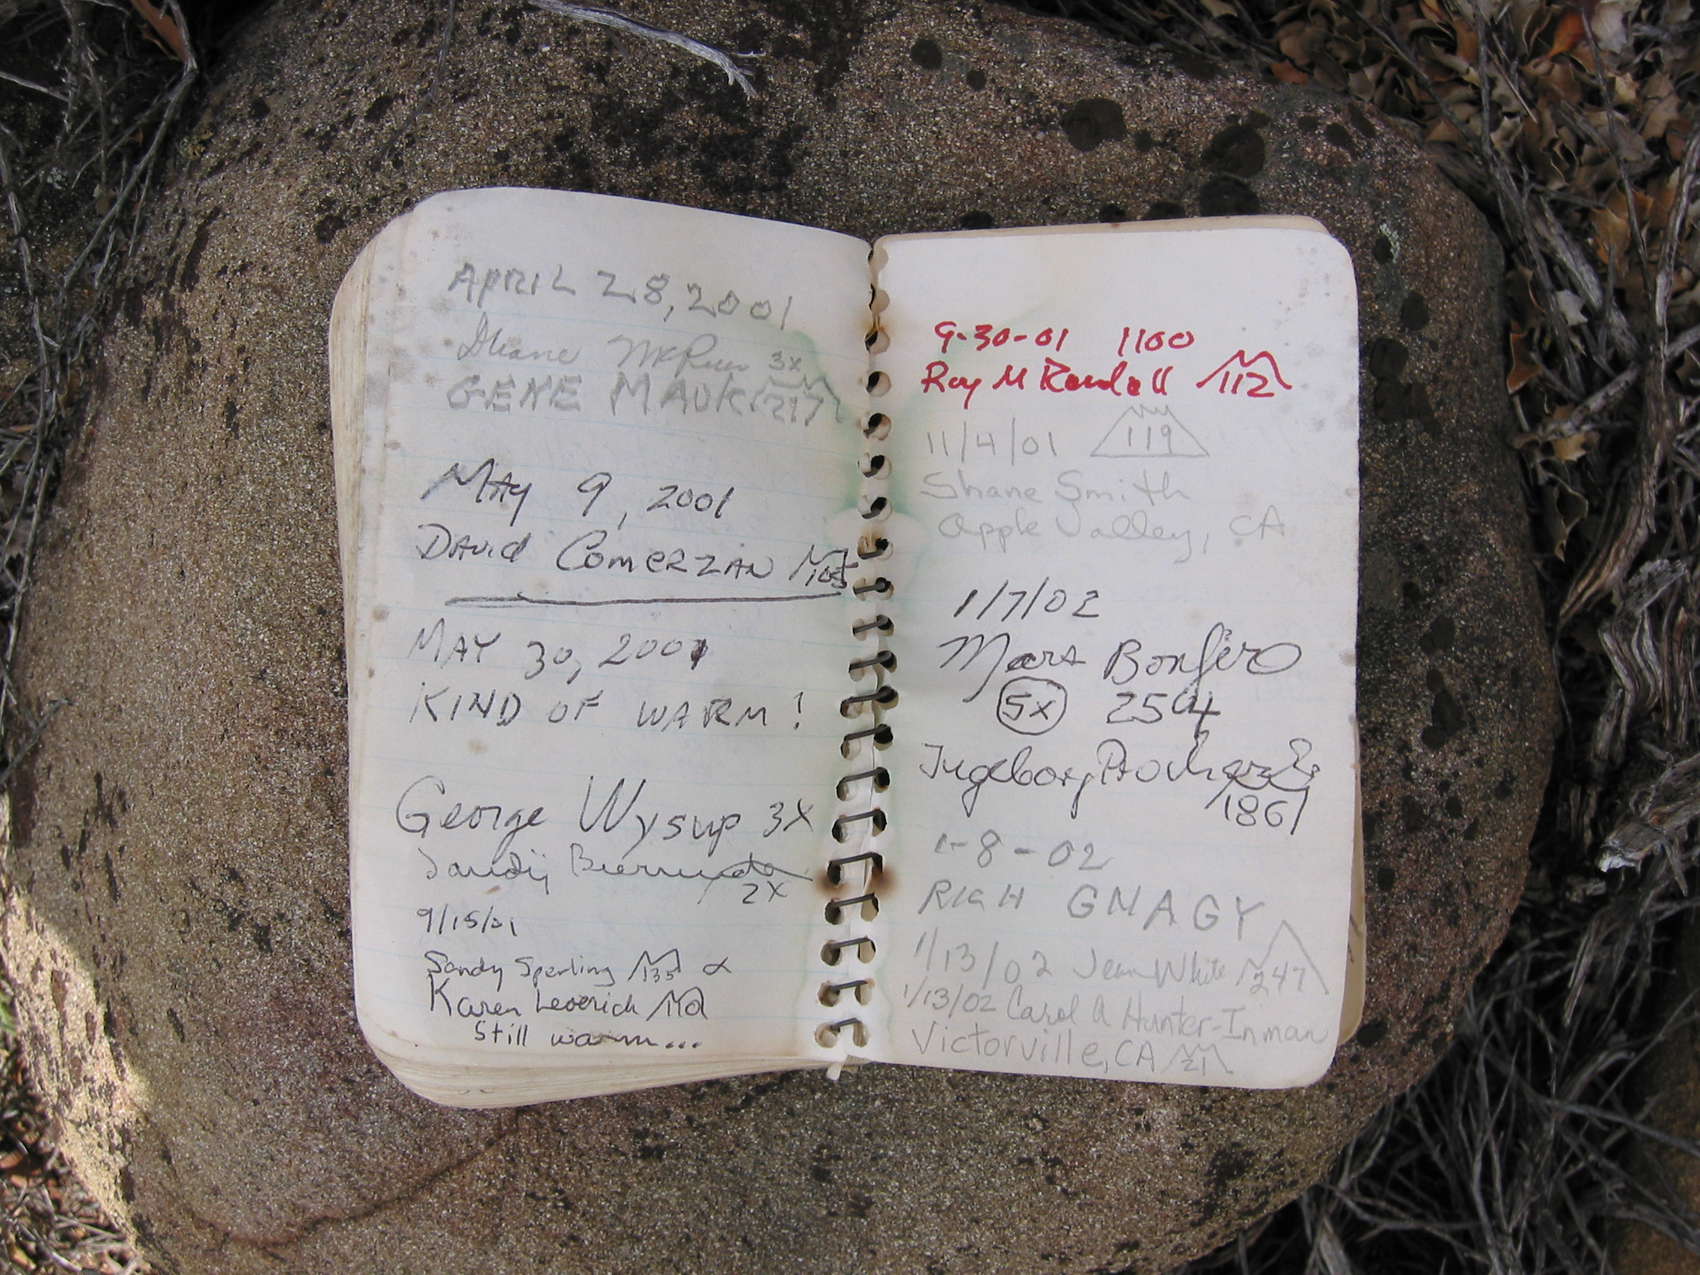 APRIL 28, 2001
Diane 3X
GENE MAUK 217
MAY 9, 2001
DAVId COMERZAN 165
MAY 30, 2001
KIND OF WARM!
George Wysup 3X
Sandy
2X
9/15/01
Sandy Sperling 135 &
Karen Leverich
Still warm...
9-30-01 1100
Roy M Randall 112
11/4/01 119
Shane Smith
Apple Valley, CA
1/7/02
Mars Bonfire
5X 25
Ingeborg Prochazka
186
1-8-02
RICH GNAGY
1/13/02 Jean White 247
1/13/02 Carol A Hunter-Inman
Victorville, CA 21